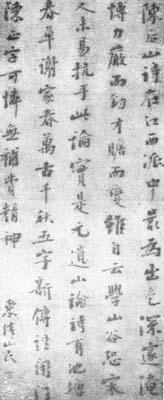 陳后山詩在江西派中最為出色深家淹
博力嚴而才贍而變雖自云學山谷恐宋
人未易抗手此論實是元遺山論詩有池塘
春草謝家春萬古千秋五字新傳語閉門
陳正字可憐無補費精神
山民